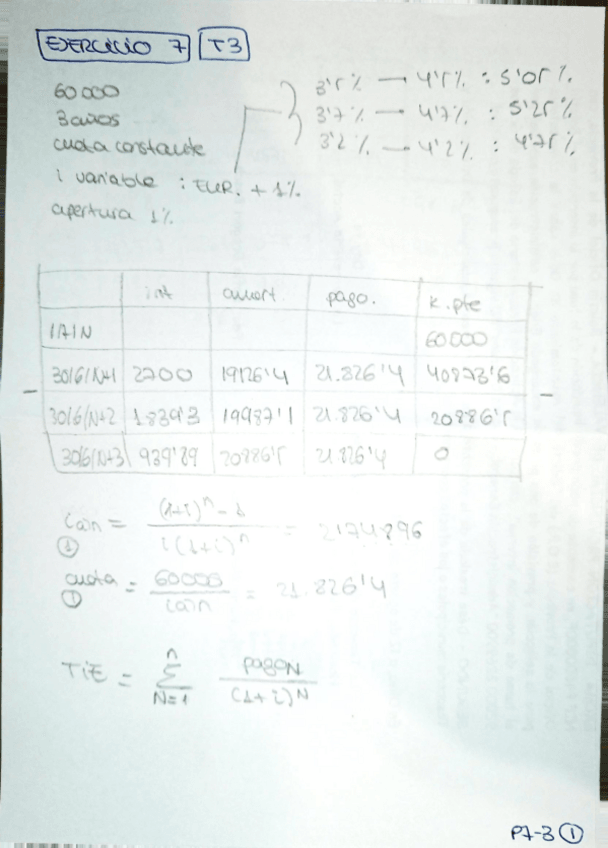 EJERCICIO 7 T3
60000
3 años
cuota constante
i variable : EUR. + 1%
apertura 1%
3'5% — 4'5% : 5'05%
3'7% — 4'7% : 5'25%
3'2% — 4'2% : 4'75%
int amort pago. K. pte
1/7/N 60000
30/6/N+1 2700 19126'4 21.826'4 40873'6
30/6/N+2 1.839'3 19987'1 21.826'4 20886'5
30/6/N+3 939'89 20886'5 21.826'4 0
Can = (1+i)^n - 1 / i(1+i)^n = 2174896
①
cuota = 60000 / Can = 21.826'4
①
TIE = n Σ N=1 pagoN / (1+i)^N
P7-3 ①